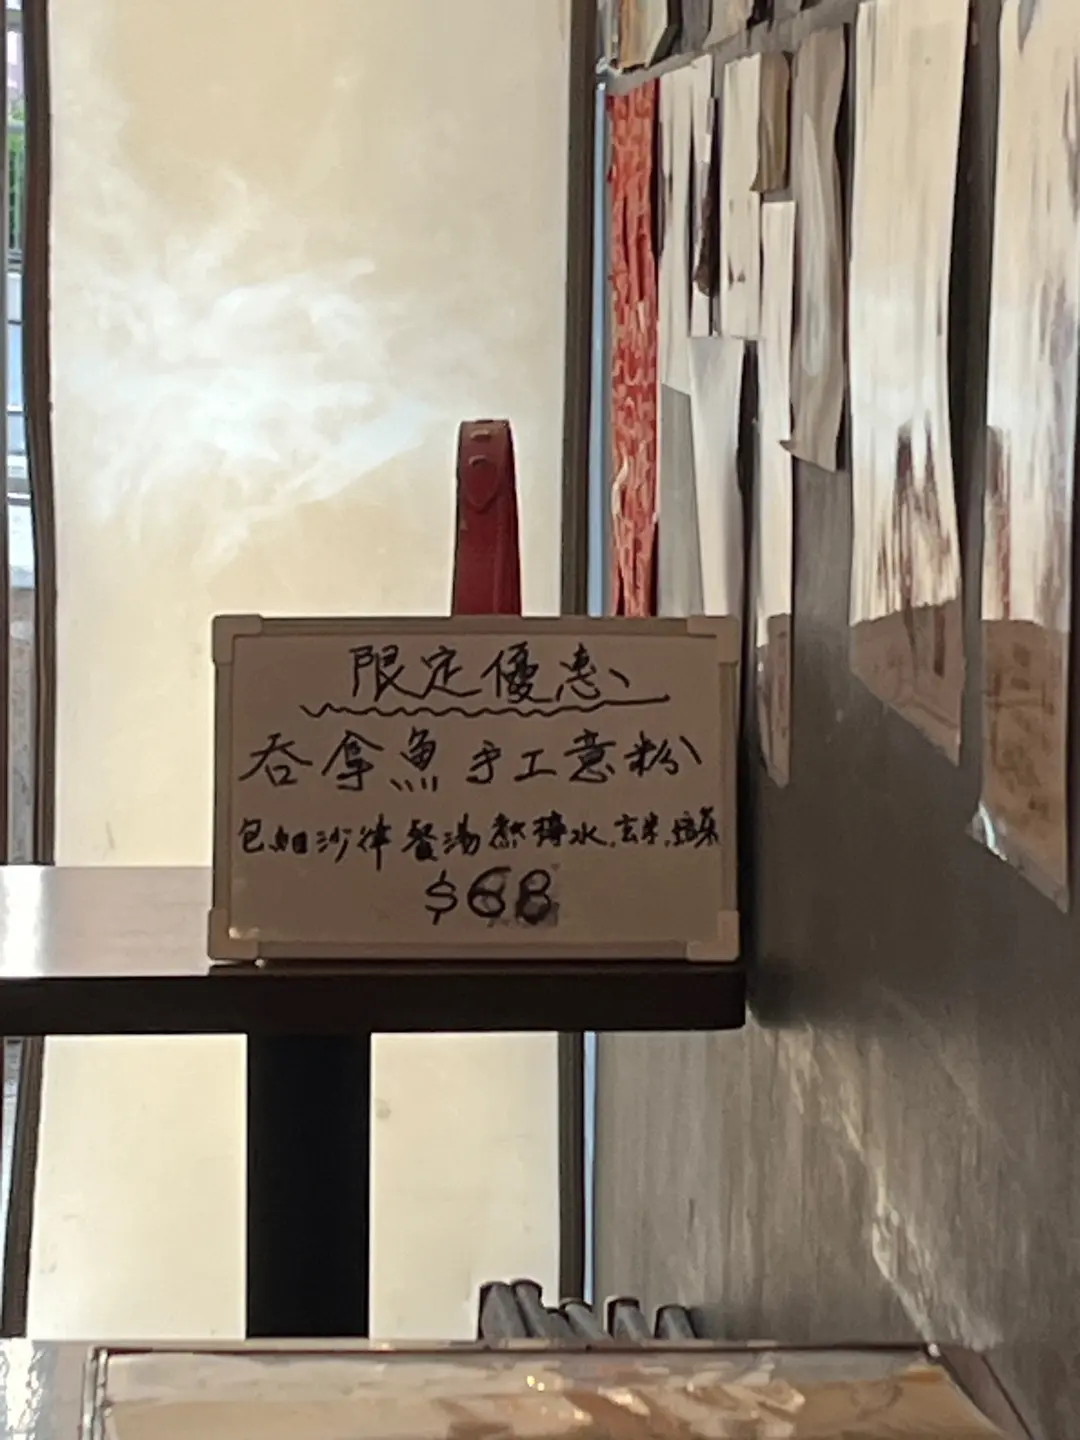 限定優惠
吞拿魚手工意粉
包細沙律餐湯熱檸水.玄米.
$68